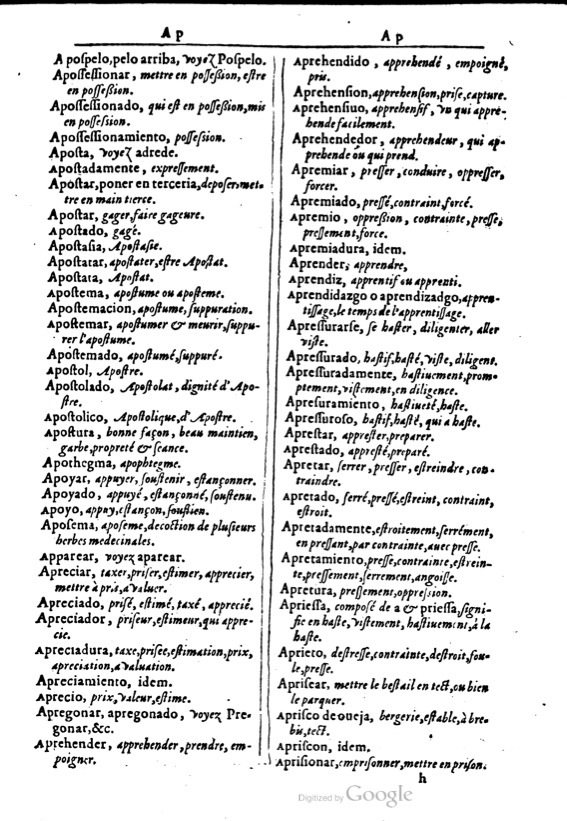 Ap
Apospelo,pelo arriba, voyez Pospelo.
Apoſſeſſionar, mettre en poſſeſsion, eſtre
en poſſeſsion.
Apoſſeſſionado, qui eſt en poſſeſsion,mis
en poſſeſsion.
Apoſſeſſionamiento, poſſeſsion.
Apoſta, voyez adrede.
Apoſtadamente, expreſſement.
Apoſtar,poner en terceria,depoſer,met-
tre en main tierce.
Apoſtar, gager,faire gageure.
Apoſtado, gagé.
Apoſtaſia, Apoſtaſie.
Apoſtatar, apoſtater,eſtre Apoſtat.
Apoſtata, Apoſtat.
Apoſtema, apoſtume ou apoſteme.
Apoſtemacion, apoſtume, ſuppuration.
Apoſtemar, apoſtumer & meurir,ſuppu-
rer l'apoſtume.
Apoſtemado, apoſtumé,ſuppuré.
Apoſtol, Apoſtre.
Apoſtolado, Apoſtolat, dignité d'Apo-
ſtre.
Apoſtolico, Apoſtolique,d'Apoſtre.
Apoſtura, bonne façon, beau maintien,
garbe,propreté & ſeance.
Apothegma, apophtegme.
Apoyar, appuyer, ſouſtenir, eſtançonner.
Apoyado, appuyé, eſtançonné, ſouſtenu.
Apoyo, appuy,eſtançon, ſouſtien.
Apoſema, apoſeme,decoction de pluſieurs
herbes medecinales.
Apparear, voyez aparear.
Apreciar, taxer,priſer,eſtimer, apprecier,
mettre à pris,avaluer.
Apreciado, priſé, eſtimé, taxé, apprecié.
Apreciador, priſeur,eſtimeur,qui appre-
cie.
Apreciadura, taxe,priſee,eſtimation, prix,
apreciation,avaluation.
Apreciamiento, idem.
Aprecio, prix,valeur,eſtime.
Apregonar, apregonado, voyez Pre-
gonar,&c.
Aprehender, apprehender, prendre, em-
poigner.
Ap
Aprehendido, apprehendé, empoigné,
pris.
Aprehenſion,apprehenſion,priſe,capture.
Aprehenſiuo, apprehenſif, vn qui appre-
hende facilement.
Aprehendedor, apprehendeur, qui ap-
prehende ou qui prend.
Apremiar, preſſer, conduire, oppreſſer,
forcer.
Apremiado, preſſé,contraint,forcé.
Apremio, oppreſsion, contrainte, preſſe,
preſſement,force.
Apremiadura, idem.
Aprender, apprendre,
Aprendiz, apprentif ou apprenti.
Aprendidazgo o aprendizadgo,appren-
tiſſage,le temps de l'apprentiſſage.
Apreſſurarſe, ſe haſter, diligenter, aller
viſte.
Apreſſurado, haſtif,haſté, viſte, diligent.
Apreſſuradamente, haſtiuement, prom-
ptement,viſtement,en diligence.
Apreſuramiento, haſtiueté,haſte.
Apreſſuroſo, haſtif,haſté, qui a haſte.
Apreſtar, appreſter,preparer.
Apreſtado, appreſté,preparé.
Apretar, ſerrer, preſſer, eſtreindre, con-
traindre.
Apretado, ſerré,preſſé,eſtreint, contraint,
eſtroit.
Apretadamente,eſtroitement,ſerrément,
en preſſant,par contrainte,auec preſſe.
Apretamiento,preſſe,contrainte,eſtrein-
te,preſſement,ſerrement,angoiſſe.
Apretura, preſſement,oppreſsion.
Aprieſſa, compoſé de a & prieſſa,ſigni-
fie en haſte, viſtement, haſtiuement,à la
haſte.
Aprieto, deſtreſſe,contrainte,deſtroit,fou-
le,preſſe.
Apriſcar, mettre le beſtail en tect,ou bien
le parquer.
Apriſco de oueja, bergerie,eſtable,à bre-
bis,tect.
Apriſcon, idem.
Apriſionar,empriſonner,mettre en priſon.
h
Digitized by Google